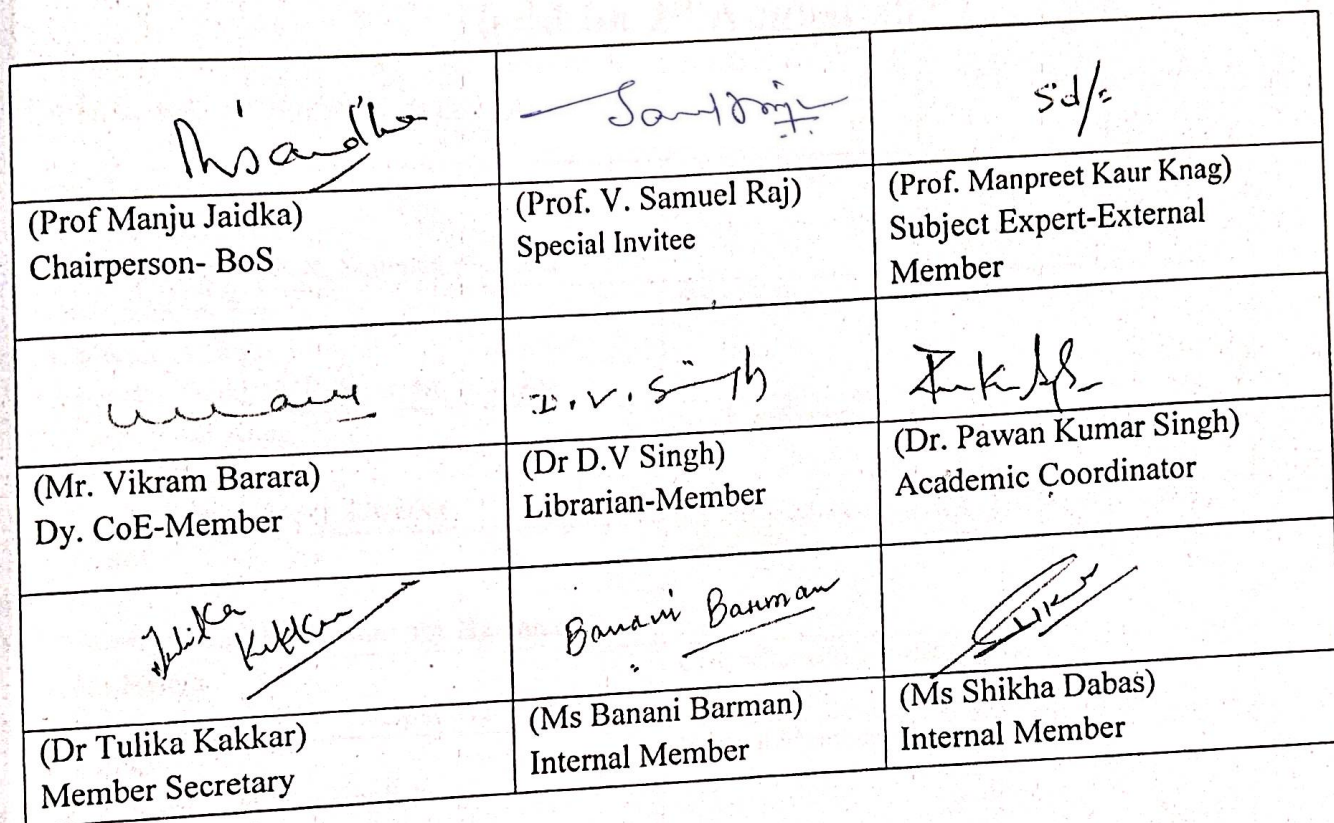 sd/-
(Prof Manju Jaidka)
Chairperson- BoS
(Prof. V. Samuel Raj)
Special Invitee
(Prof. Manpreet Kaur Knag)
Subject Expert-External
Member
D.V. Singh
(Mr. Vikram Barara)
Dy. CoE-Member
(Dr D.V Singh)
Librarian-Member
(Dr. Pawan Kumar Singh)
Academic Coordinator
Tulika
Kakkar
Banani Barman
(Dr Tulika Kakkar)
Member Secretary
(Ms Banani Barman)
Internal Member
(Ms Shikha Dabas)
Internal Member